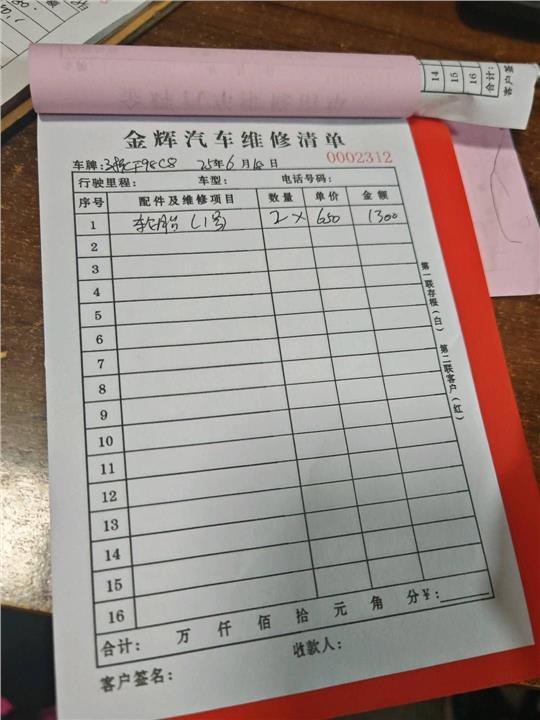 金辉汽车维修清单
车牌: F98C8 25年6月18日 0002312
行驶里程: 车型: 电话号码:
序号 配件及维修项目 数量 单价 金额
1 轮胎 2× 650 1300
2
3
4
5
6
7
8
9
10
11
12
13
14
15
16
合计: 万 仟 佰 拾 元 角 分 ¥:
客户签名: 收款人:
第一联存根(白)
第二联客户(红)
14
15
16
合计:
客户签